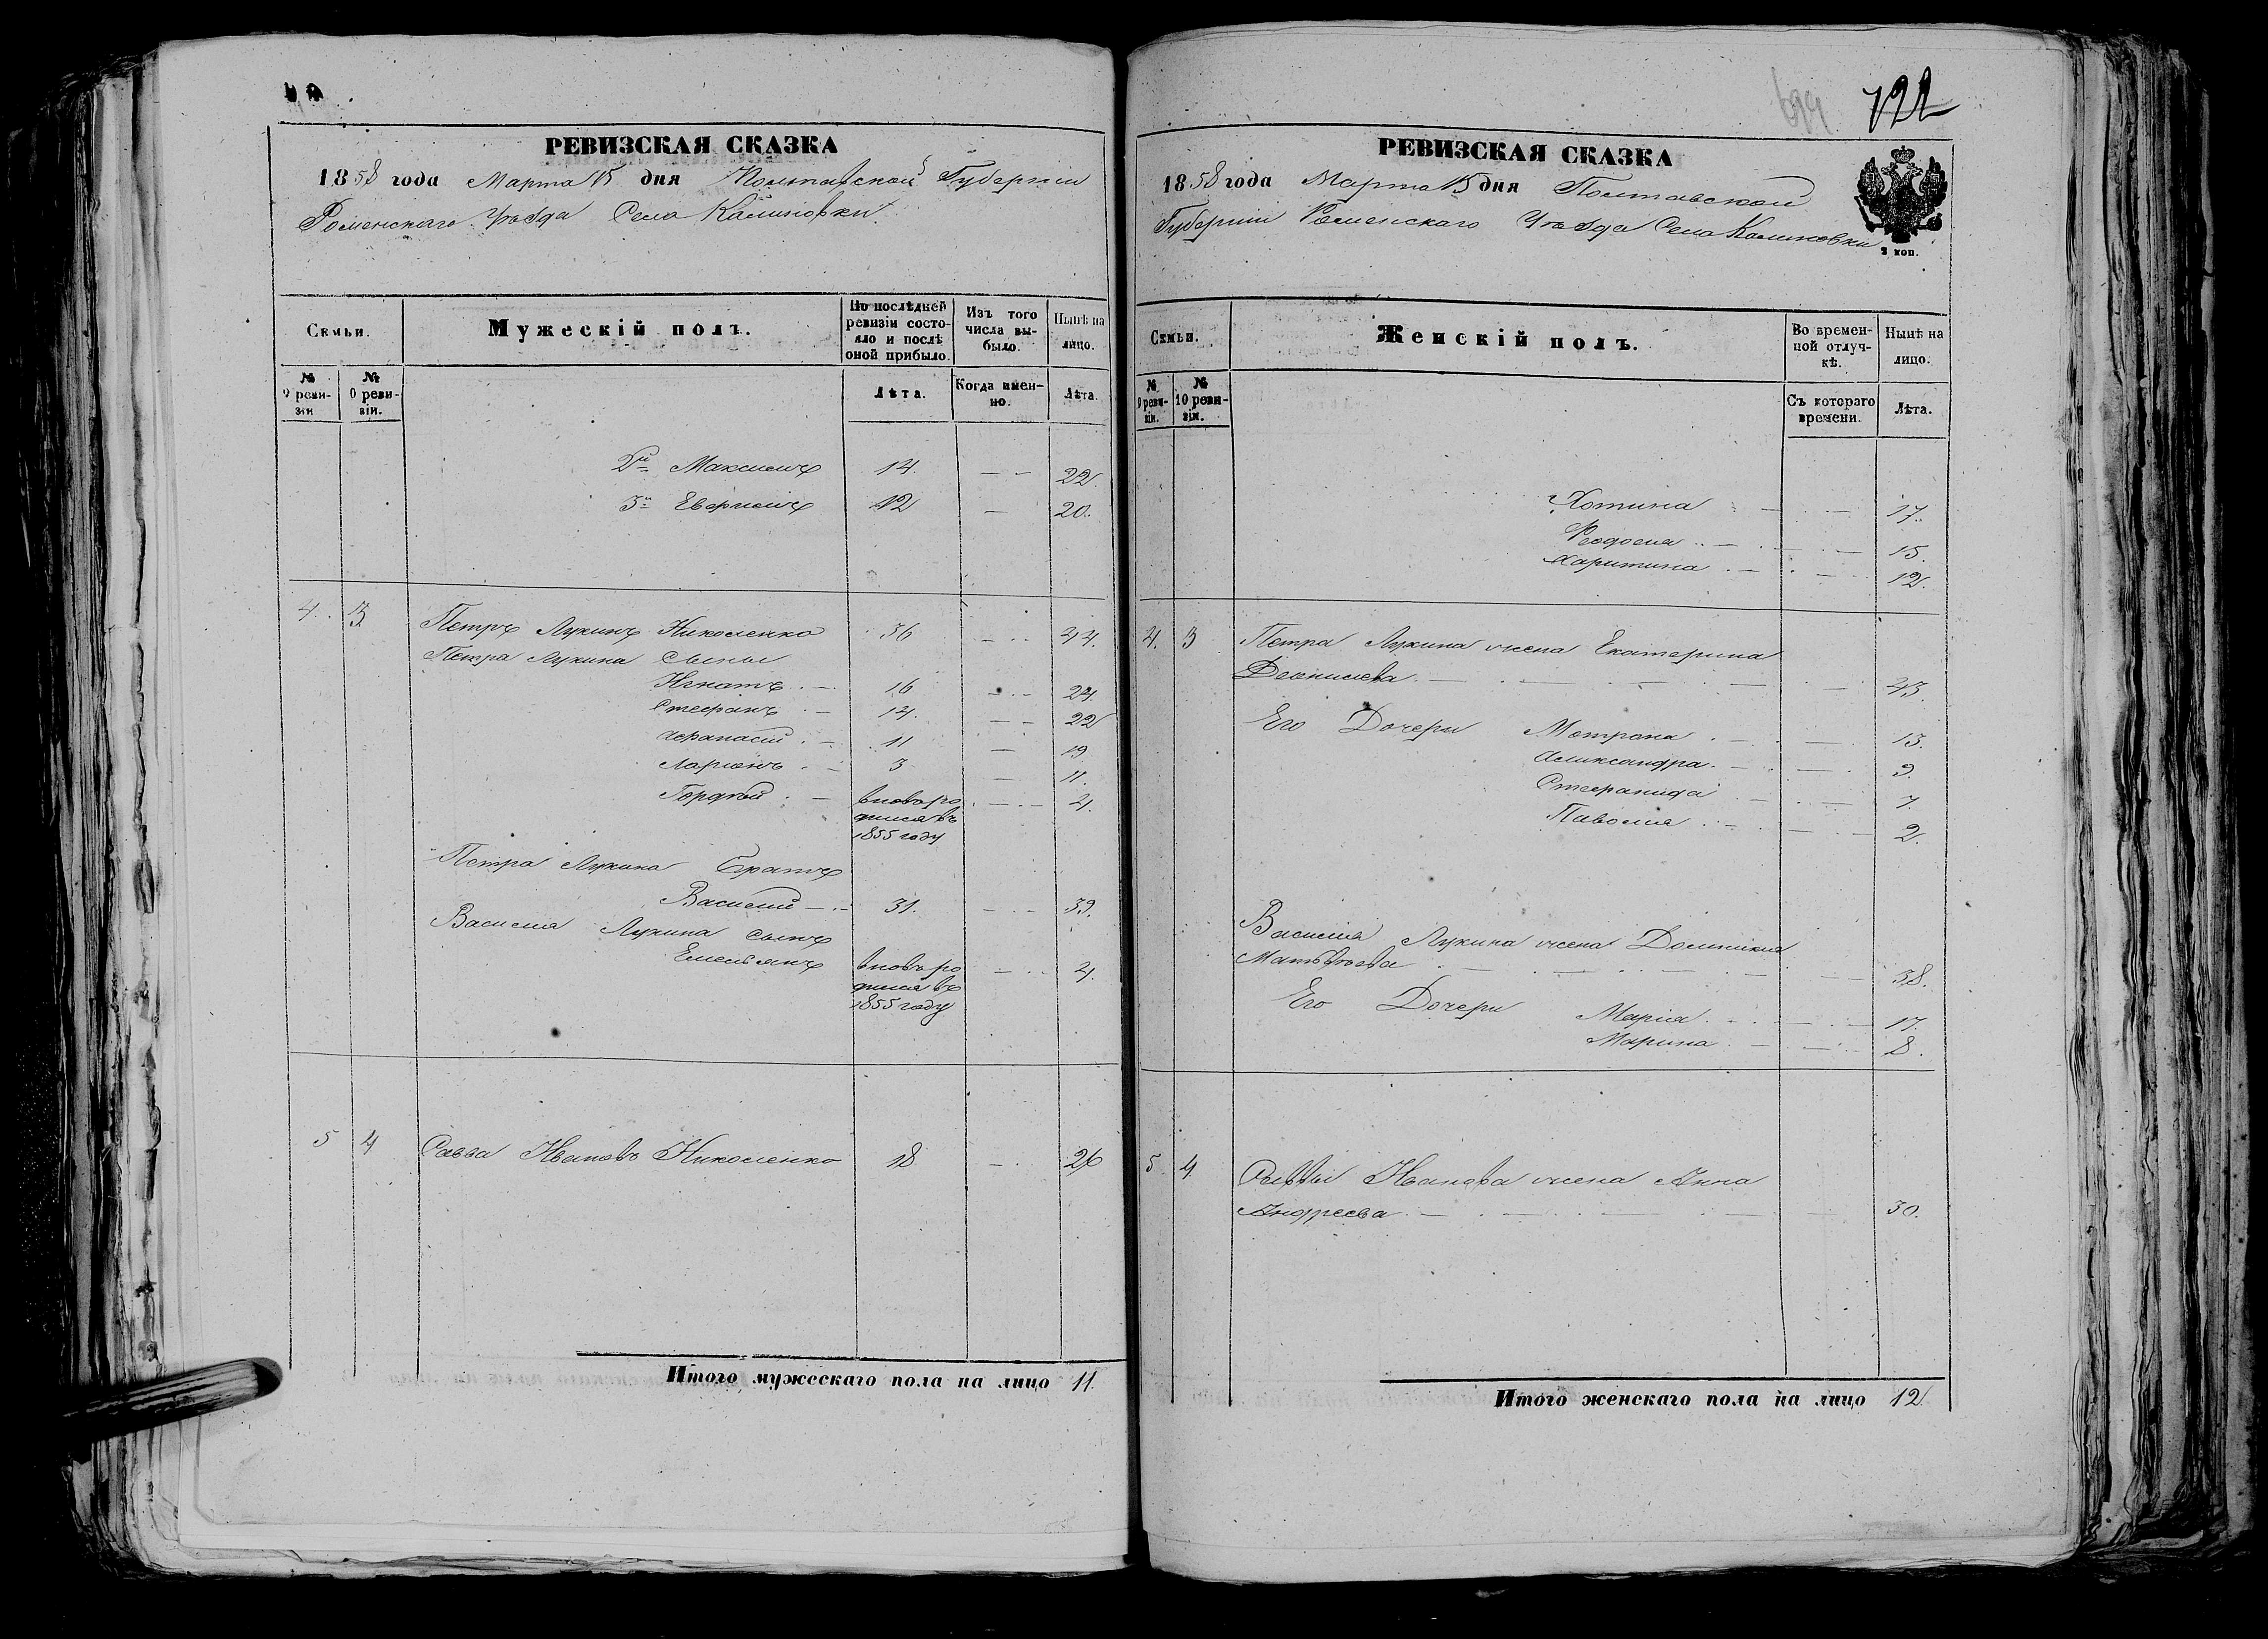 РЕВИЗСКАЯ СКАЗКА
1858 года Марта 15 дня Полтавской Губерніи
Роменскаго Уѣзда Села Калиновки
Семьи.
Мужескій полъ.
По послѣдней ревизіи состояло и послѣ оной прибыло.
Изъ того числа выбыло.
Нынѣ на лицо.
№ 9 ревизіи
№ 0 ревизіи.
Лѣта.
Когда именно.
Лѣта.
2й Максимъ 14. — — 22.
3й 12 — 20.
4. 3 Петръ Лукинъ Николенко 36 — 44.
Петра Лукина сыны
Игнатъ 16 — 24.
Стефанъ 14. — 22
Афанасій 11 — 19
Ларіонъ 3 — 11.
Гордѣй вновь ро — 4.
дился въ
1855 году
Петра Лукина Братъ
Василій — 31. — 39.
Василия Лукина сынъ
Емельянъ вновь ро — 4.
дился въ
1855 году
5 4 Савва Ивановъ Николенко 18 — 26
Итого мужескаго пола на лицо 11.
699 722
РЕВИЗСКАЯ СКАЗКА
1858 года Марта 15 дня Полтавской
Губерніи Роменскаго Уѣзда Села Калиновки
2 коп.
Семьи.
Женскій полъ.
Во временной отлучкѣ.
Нынѣ на лицо.
№ 9 ревизіи.
№ 10 ревизіи.
Съ котораго времени.
Лѣта.
Хотина — — 17.
Феодосия — — 15
Харитина — — 12.
4. 3 Петра Лукина жена Екатерина
Денисьева — 43.
Его Дочери Мотрона — 13.
Александра — 9.
Стефанида — 7.
Паволия — 2.
Василия Лукина жена Домникия
Матвѣева — 38.
Его Дочери Марія — 17.
Марина — 8.
5. 4. Саввы Иванова жена Анна
Андреева — 30.
Итого женскаго пола на лицо 12